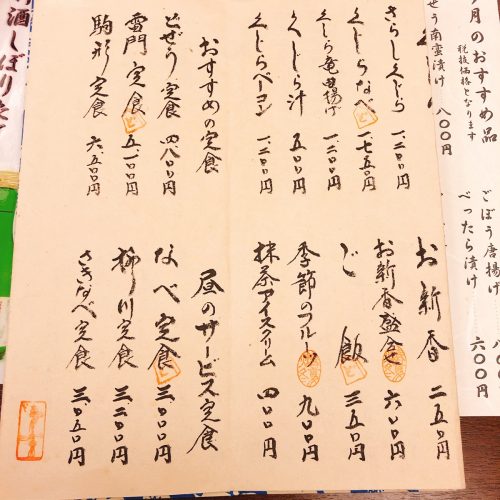 月のおすすめ品
税抜価格となります
ぜう南蛮漬け 八〇〇円
ごぼう唐揚げ 八〇
べったら漬け 六〇〇円
さらしくじら 一、二〇〇円
くじらなべ 一、七五〇円
くじら竜田揚げ 一、二〇〇円
くじら汁 五〇〇円
くじらベーコン 一、二〇〇円
おすすめの定食
どぜう定食 四、八〇〇円
雷門定食 五、一〇〇円
駒形定食 六、五〇〇円
お新香 二五〇円
お新香盛合せ 六〇〇円
ご飯 三五〇円
季節のフルーツ 九〇〇円
抹茶アイスクリーム 四〇〇円
昼のサービス定食
なべ定食 三、〇五〇円
柳川定食 三、二〇〇円
さきなべ定食 三、〇五〇円
酒しぼりたて